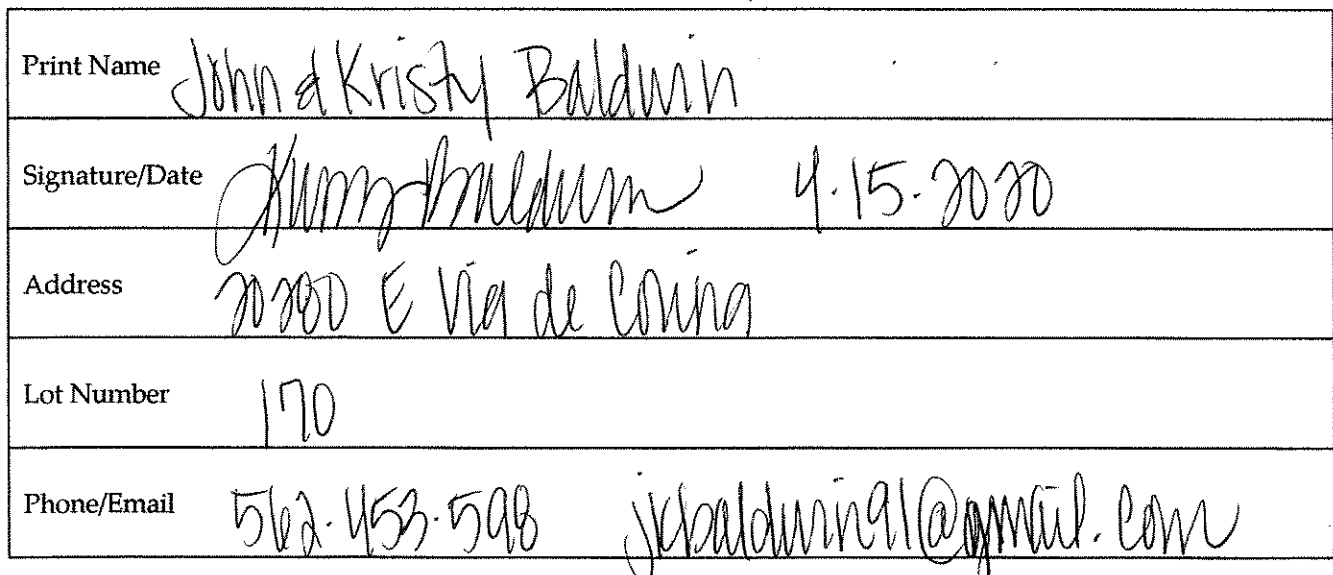 Print Name John & Kristy Baldwin
Signature/Date Kristy Baldwin 4.15.2020
Address 20280 E Via de Colina
Lot Number 170
Phone/Email 562.453.598 jkbaldwin91@gmail.com